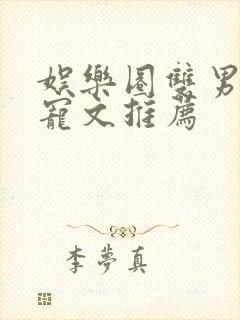 娛樂圈雙男
寵文推薦
李夢真